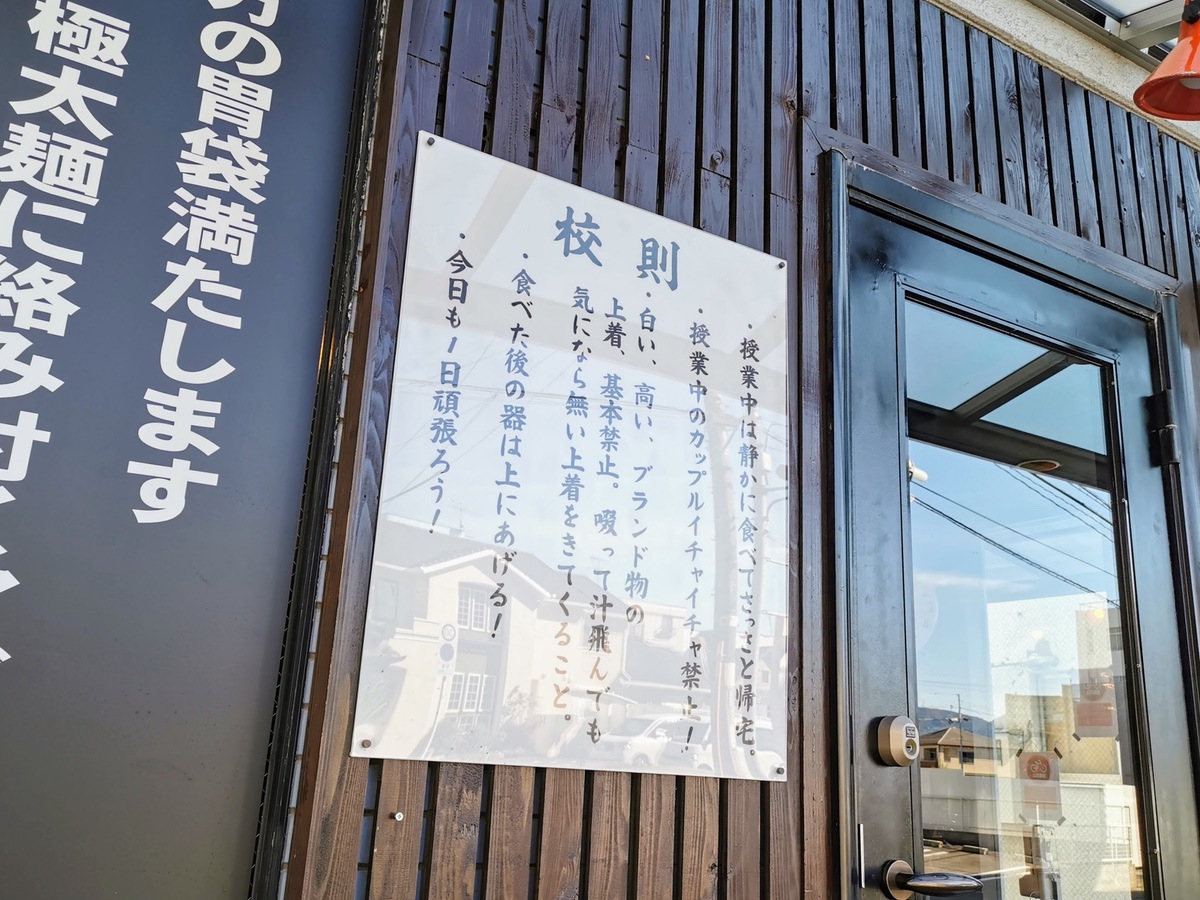 校則
・授業中は静かに食べてさっさと帰宅。
・授業中のカップルイチャイチャ禁止！
・白い、高い、ブランド物の
上着、基本禁止。啜って汁飛んでも
気になら無い上着をきてくること。
・食べた後の器は上にあげる！
・今日も1日頑張ろう！
の胃袋満たします
極太麺に絡み付